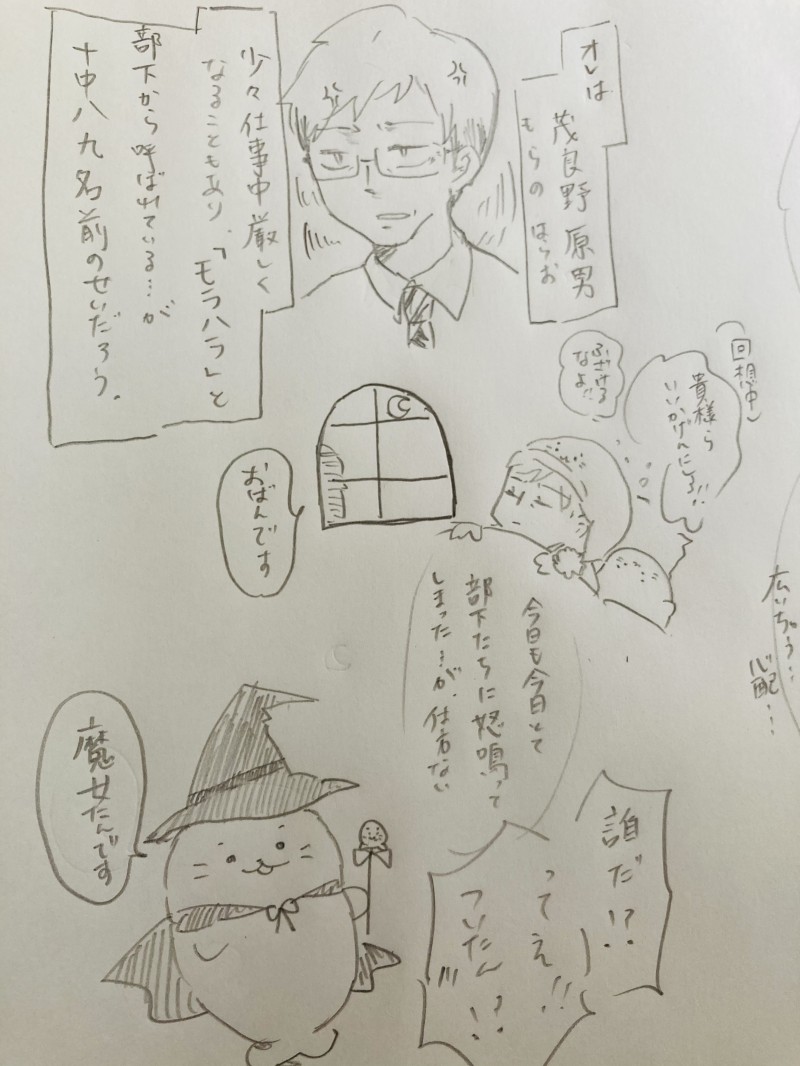 オレは
茂良野 原男
もらの はらお
少々仕事中厳しく
なることもあり、「モラハラ」と
部下から呼ばれている…が
十中八九名前のせいだろう。
(回想中)
貴様ら
いいかげんにしろ!!
ふざける
なよ!!
おばんです
今日も今日とて
部下たちに怒鳴って
しまった…が、仕方ない
広いちゅう…
心配…
誰だ!?
ってえ!!
ついたん!?
魔女たんです